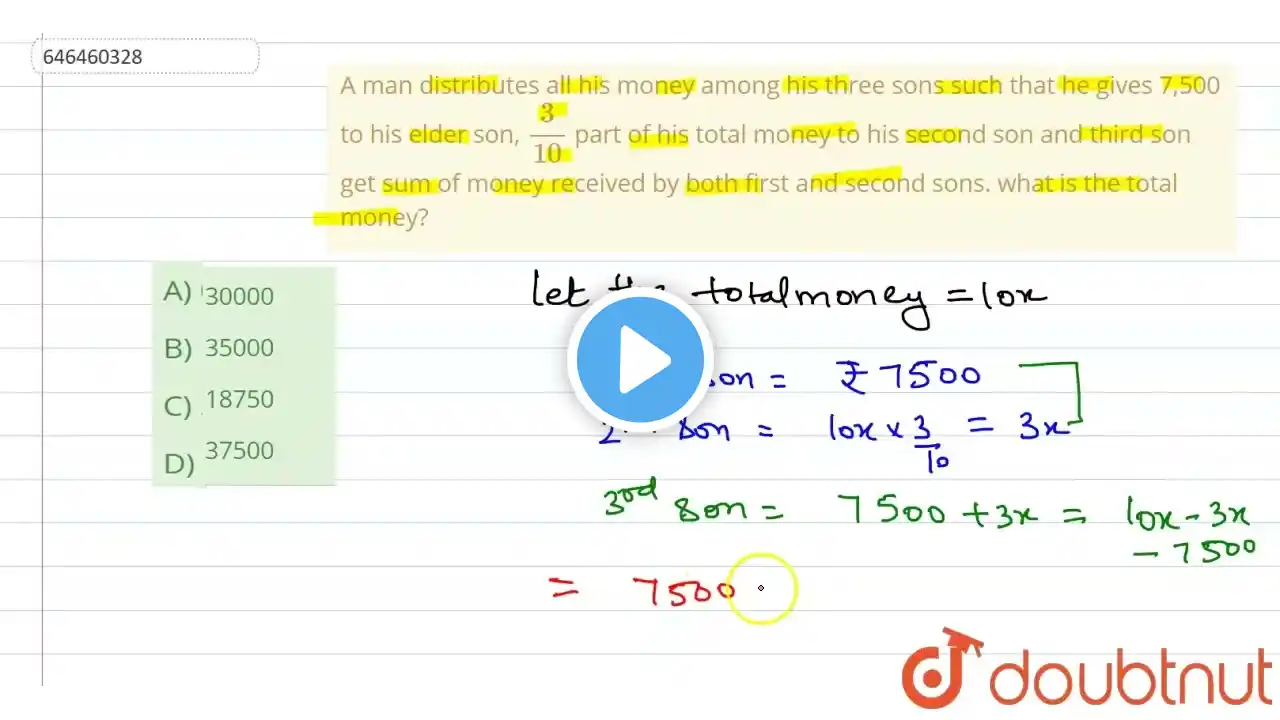 646460328
A man distributes all his money among his three sons such that he gives 7,500
to his elder son, 3/10 part of his total money to his second son and third son
get sum of money received by both first and second sons. what is the total
money?
A) 30000
B) 35000
C) 18750
D) 37500
let the total money = 10x
son = ₹ 7500
2 son = 10x × 3/10 = 3x
3rd son = 7500 + 3x = 10x - 3x
- 7500
= 7500
doubtnut